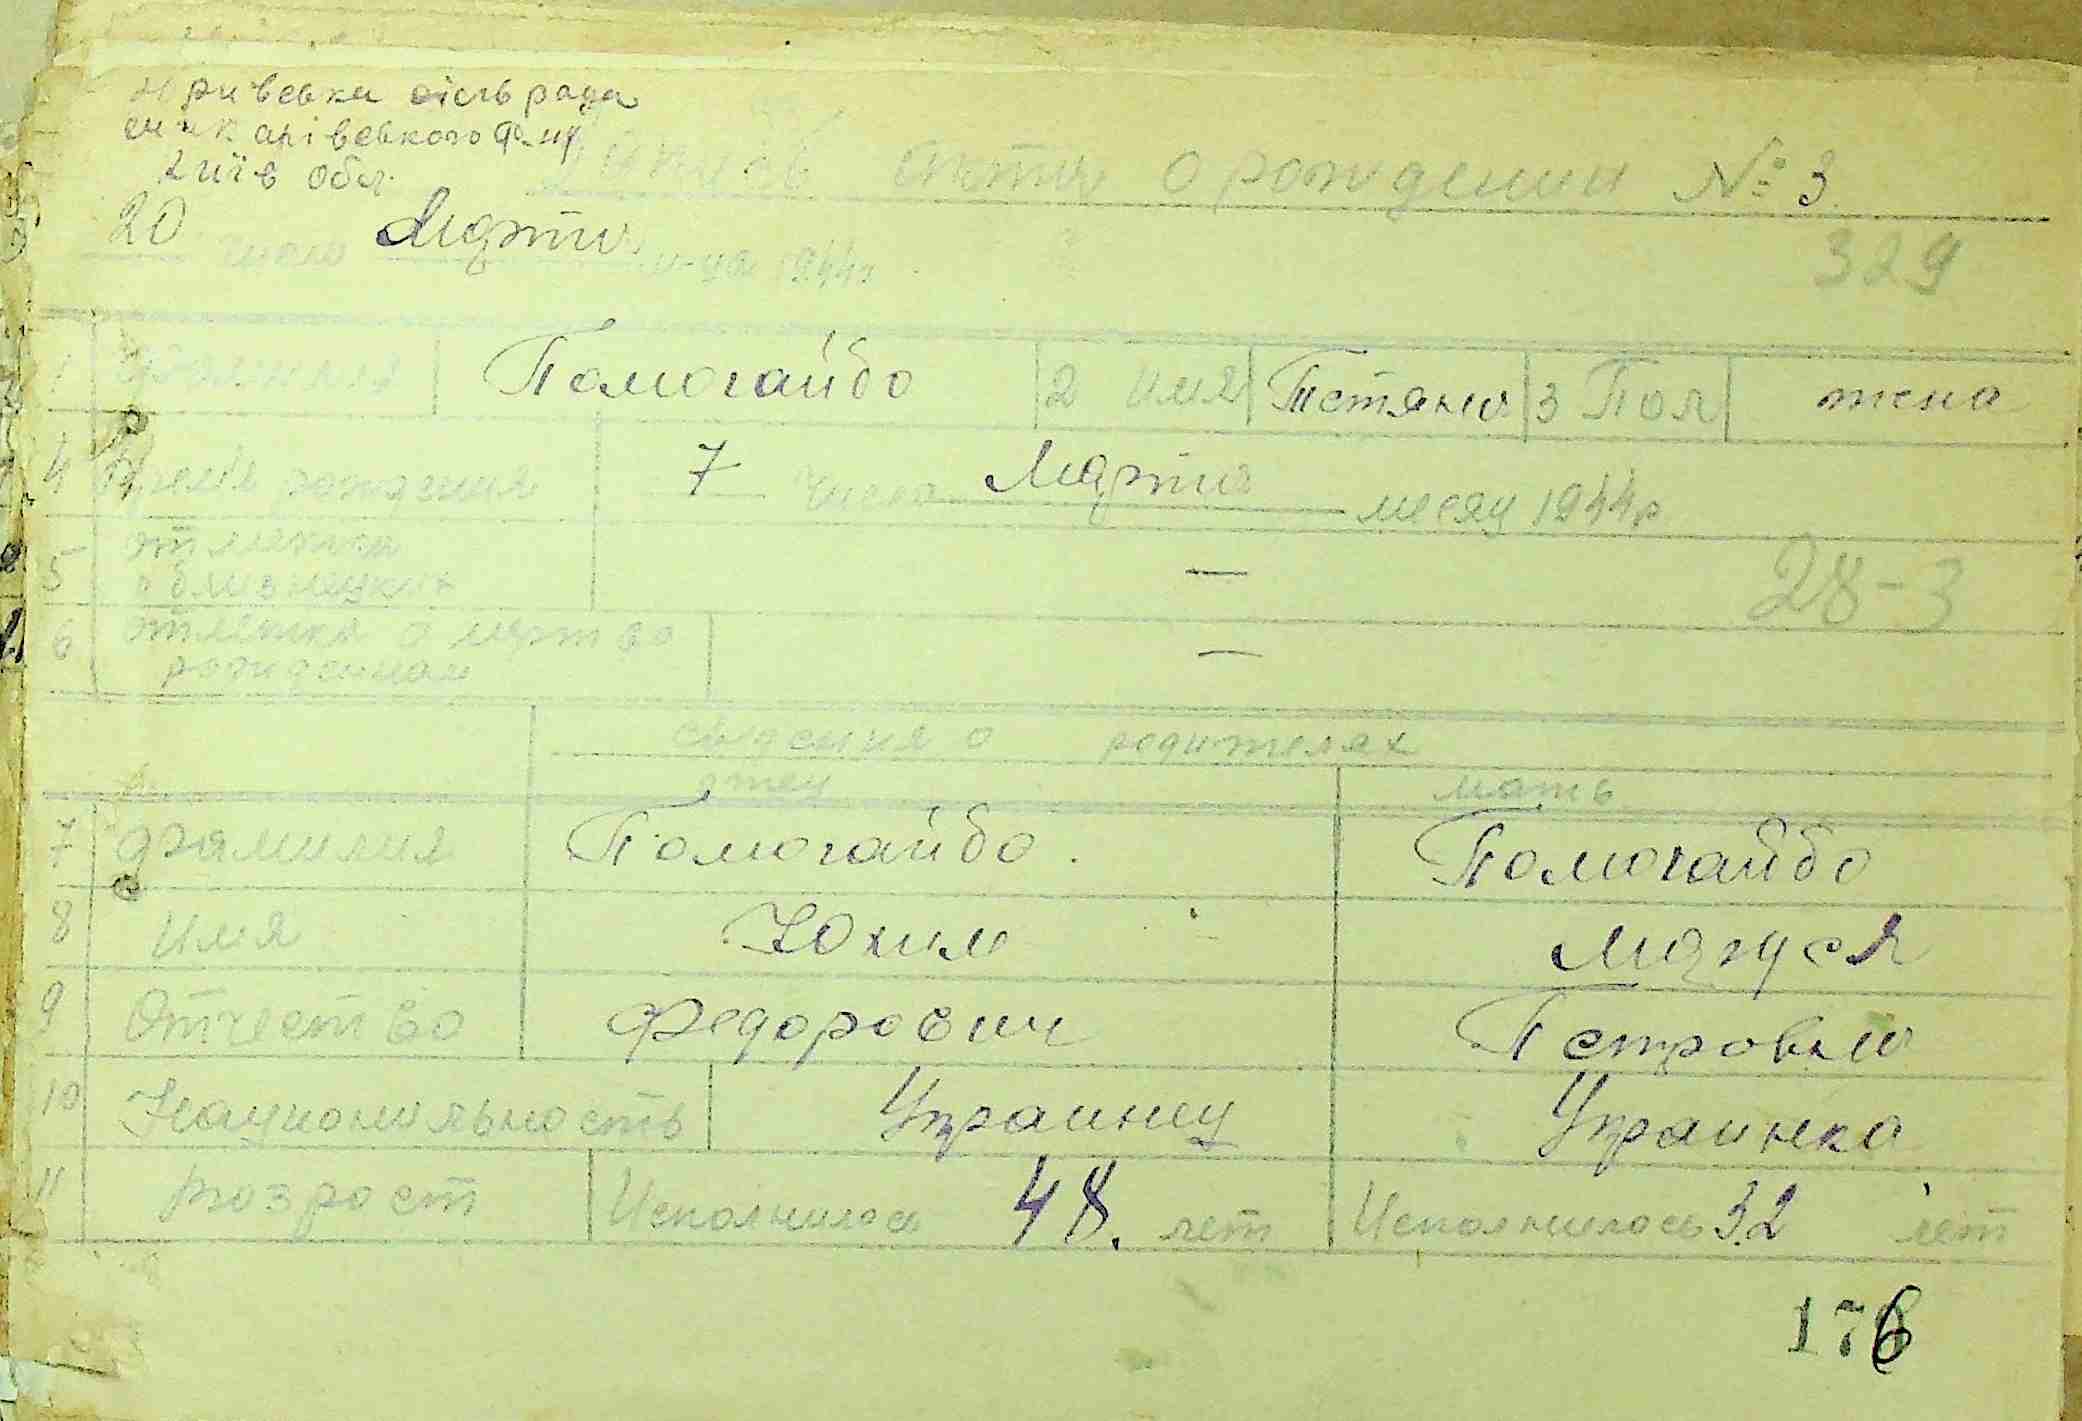 сільрада
Київ обл.
Запись акта о рождении № 3
20 число Марта м-ца 1944г
329
1 Фамилия Помогайбо 2 Имя Тетяна 3 Пол жена
4 Время рождения 7 число Марта месяц 1944г
5 отметка
о близнецах —
28-3
6 отметка о мертво
рожденном —
сведения о родителях
отец мать
7 Фамилия Помогайбо. Помогайбо
8 Имя Юхим Маруся
9 Отчество Федорович Петровна
10 Национальность Украинец Украинка
11 возраст Исполнилось 48. лет Исполнилось 32 лет
176